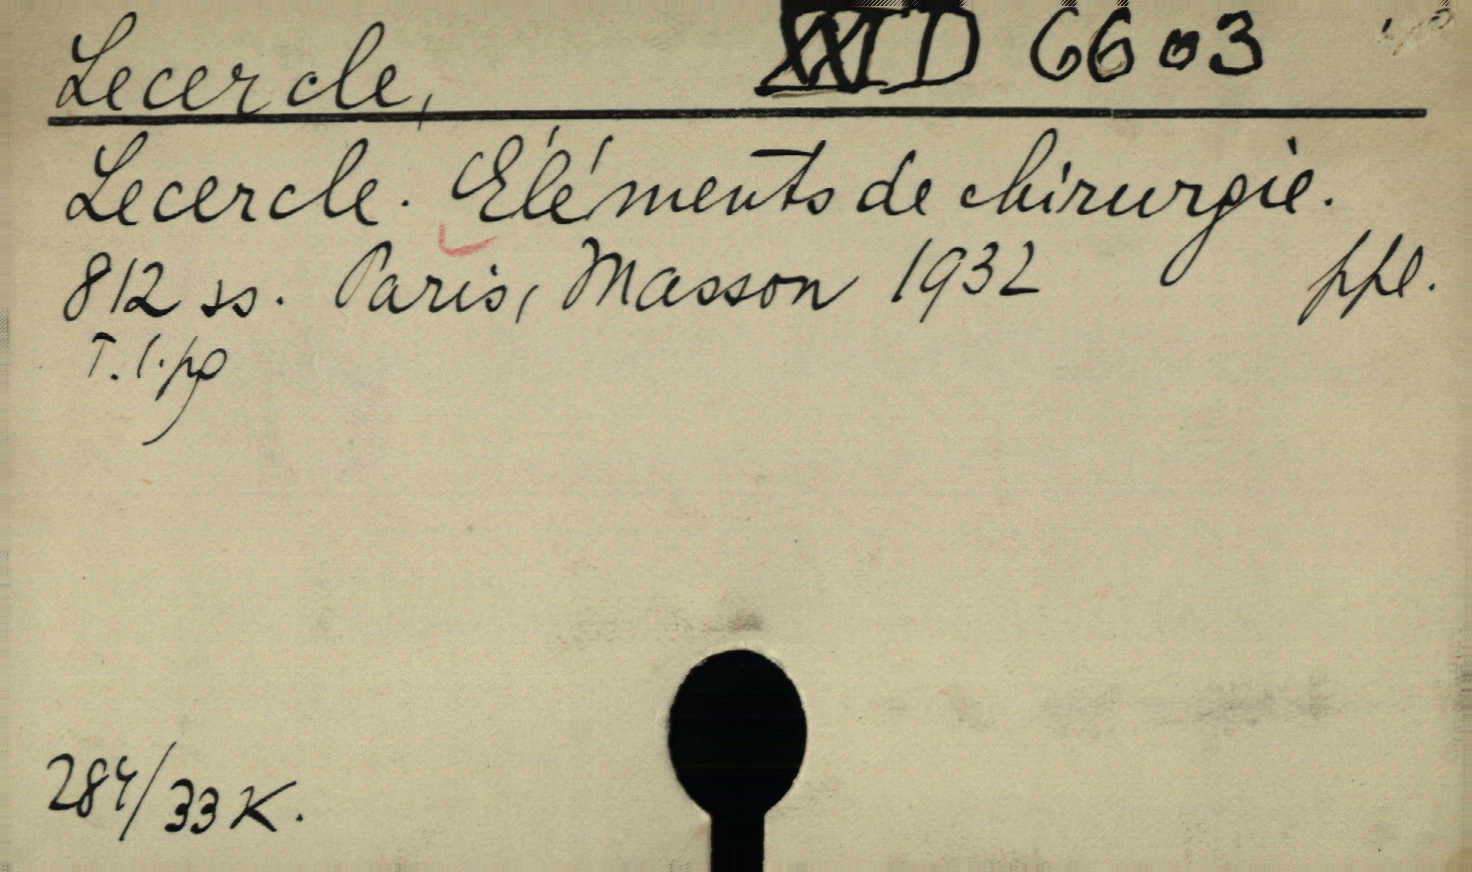 Lecercle, XXID 6603
Lecercle. Eléments de chirurgie.
812 ss. Paris, Masson 1932 ppl.
284/33 K.